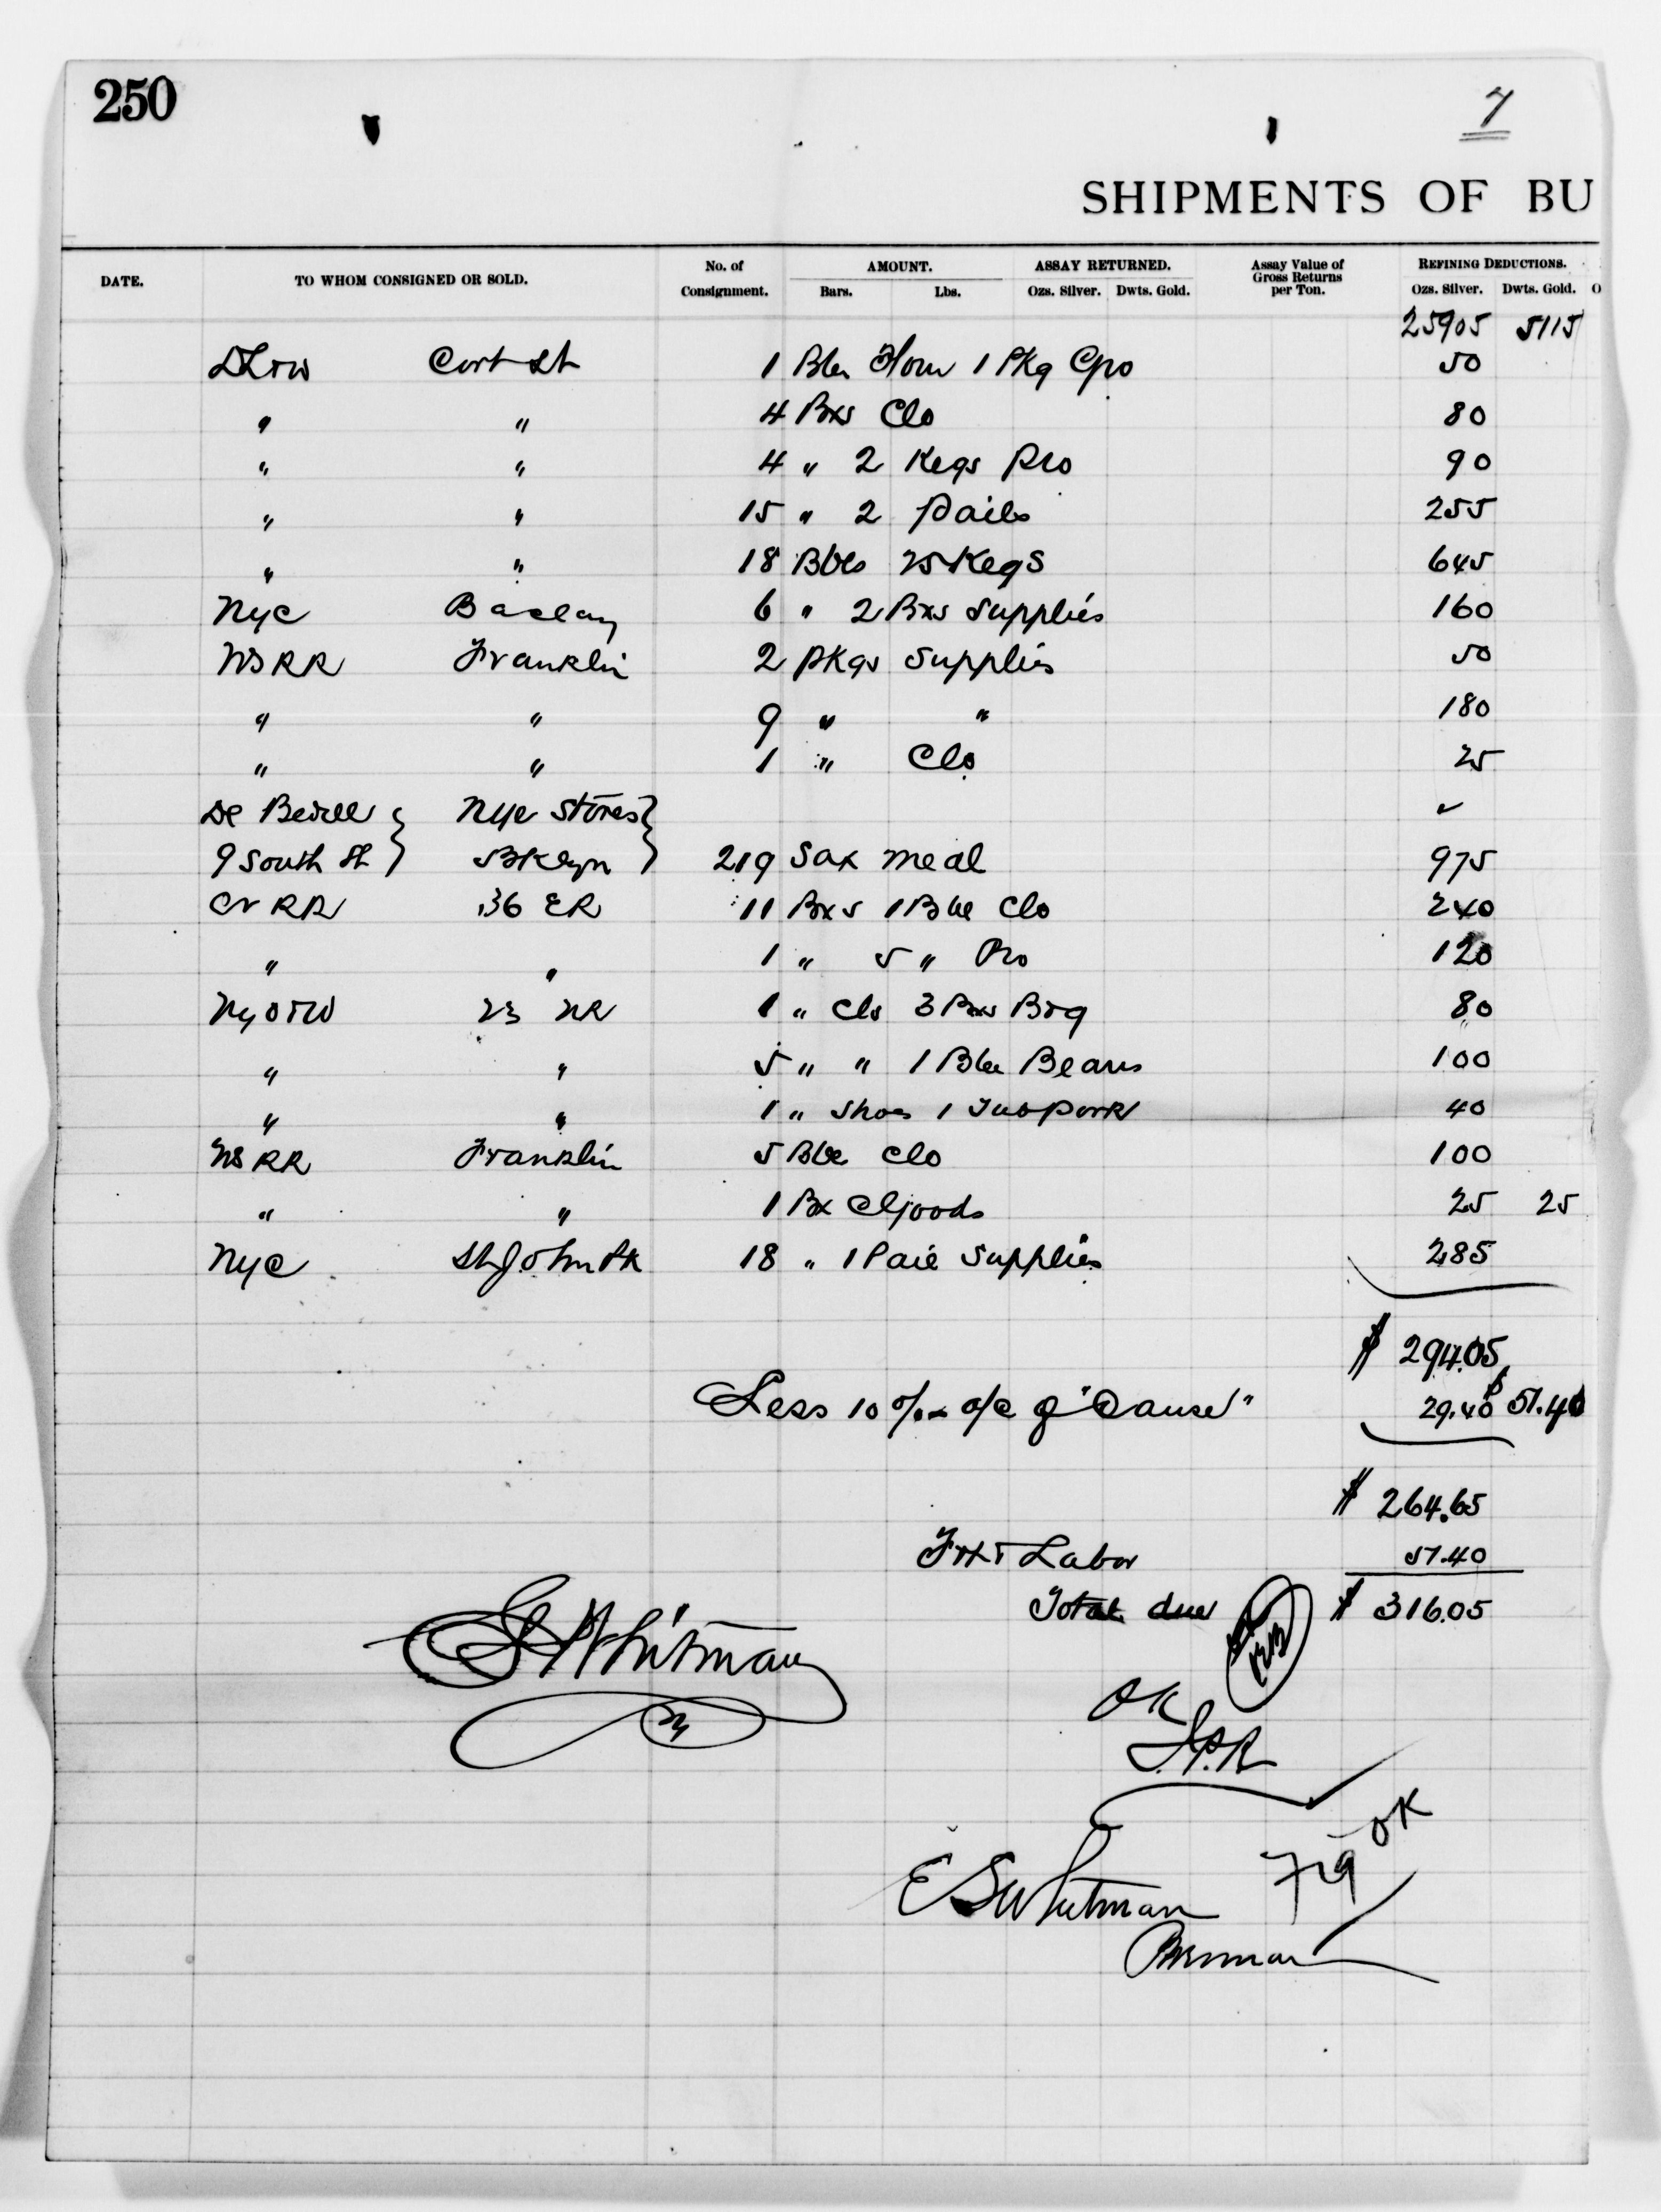 250
7
SHIPMENTS OF BU
DATE. TO WHOM CONSIGNED OR SOLD. No. of Consignment. AMOUNT. Bars. Lbs. ASSAY RETURNED. Ozs. Silver. Dwts. Gold. Assay Value of Gross Returns per Ton. REFINING DEDUCTIONS. Ozs. Silver. Dwts. Gold. O
25905 5115
Cort St 1 1 Pkg 50
" " 4 Bxs Clo 80
" " 4 " 2 Kegs Pro 90
" " 15 " 2 Pails 255
" " 18 Bbls 25 Kegs 645
NYC Baclay 6 " 2 Bxs Supplies 160
WSRR Franklin 2 Pkgs Supplies 50
" " 9 " " 180
" " 1 " Clo 25
NYC Stores }
9 South St } Bklyn } 219 Sax meal 975
CVRR 36 ER 11 Bxs 1 Bbl Clo 240
" " 1 " 5 " Pro 120
NYO&W 23 NR 1 " Clo 3 Bxs 80
" " 5 " " 1 Bbl Beans 100
" " 1 " Shoes 1 Tub Pork 40
WSRR Franklin 5 Bbl Clo 100
" " 1 Bx 25 25
NYC St John Pk 18 " 1 Pail Supplies 285
$ 294.05
Less 10 % a/c of "Cause" 29.40 $ 51.40
$ 264.65
Labor 51.40
Total due $ 316.05
Whitman
OK
J.P.R
OK
719
E S Whitman